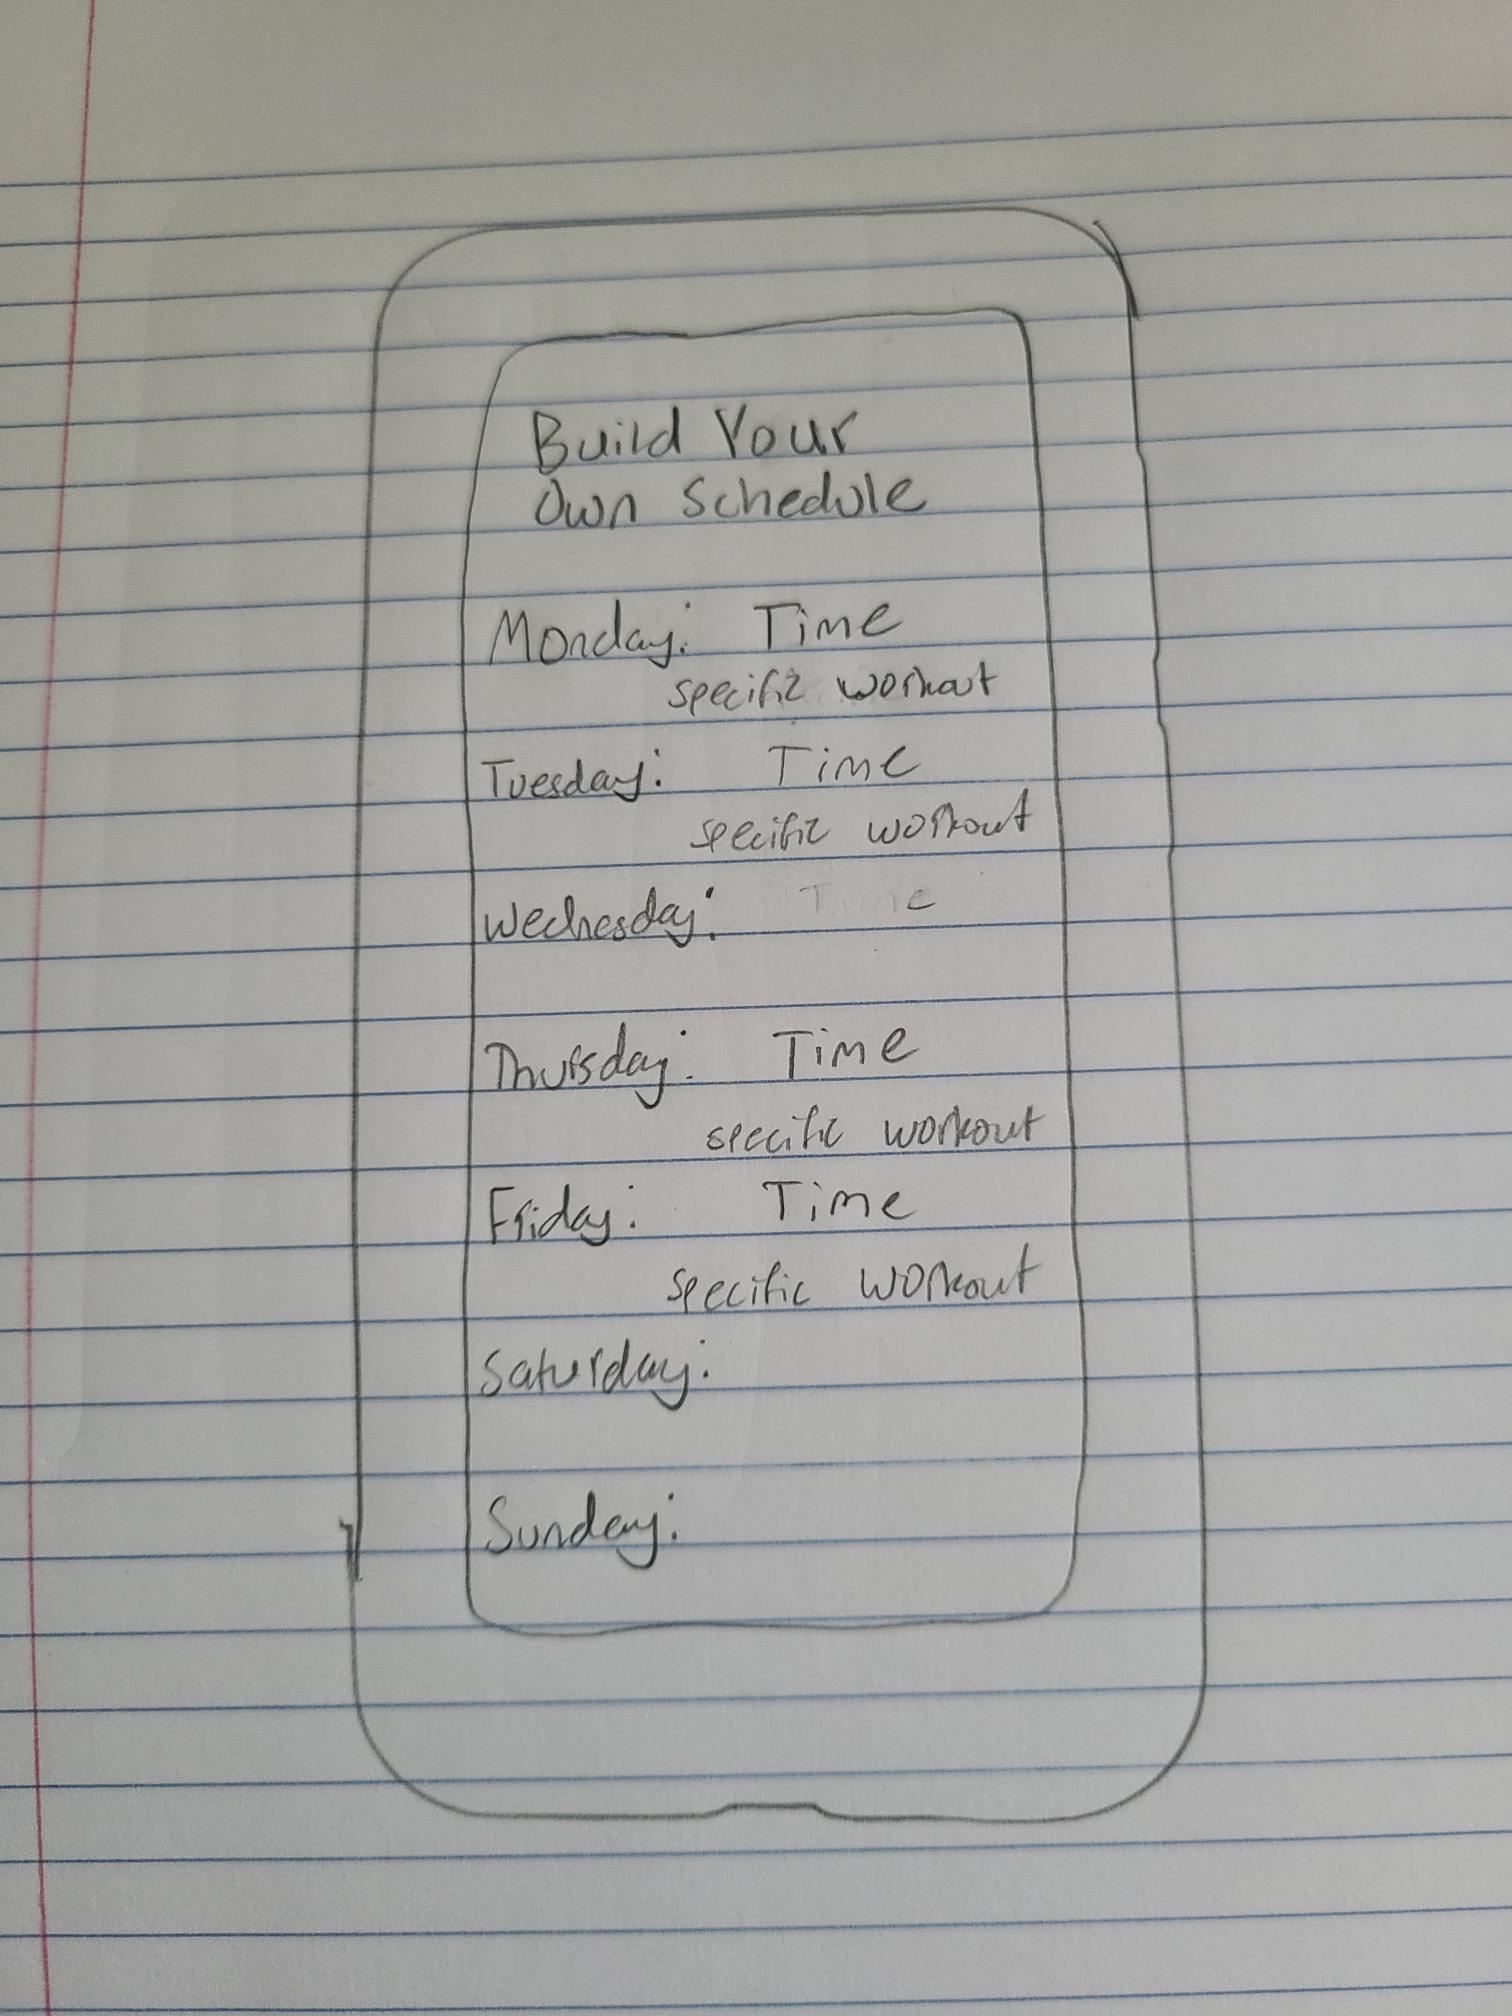 Build Your
Own Schedule
Monday: Time
specific workout
Tuesday: Time
specific workout
Wednesday: Time
Thursday: Time
specific workout
Friday: Time
specific workout
Saturday:
Sunday: